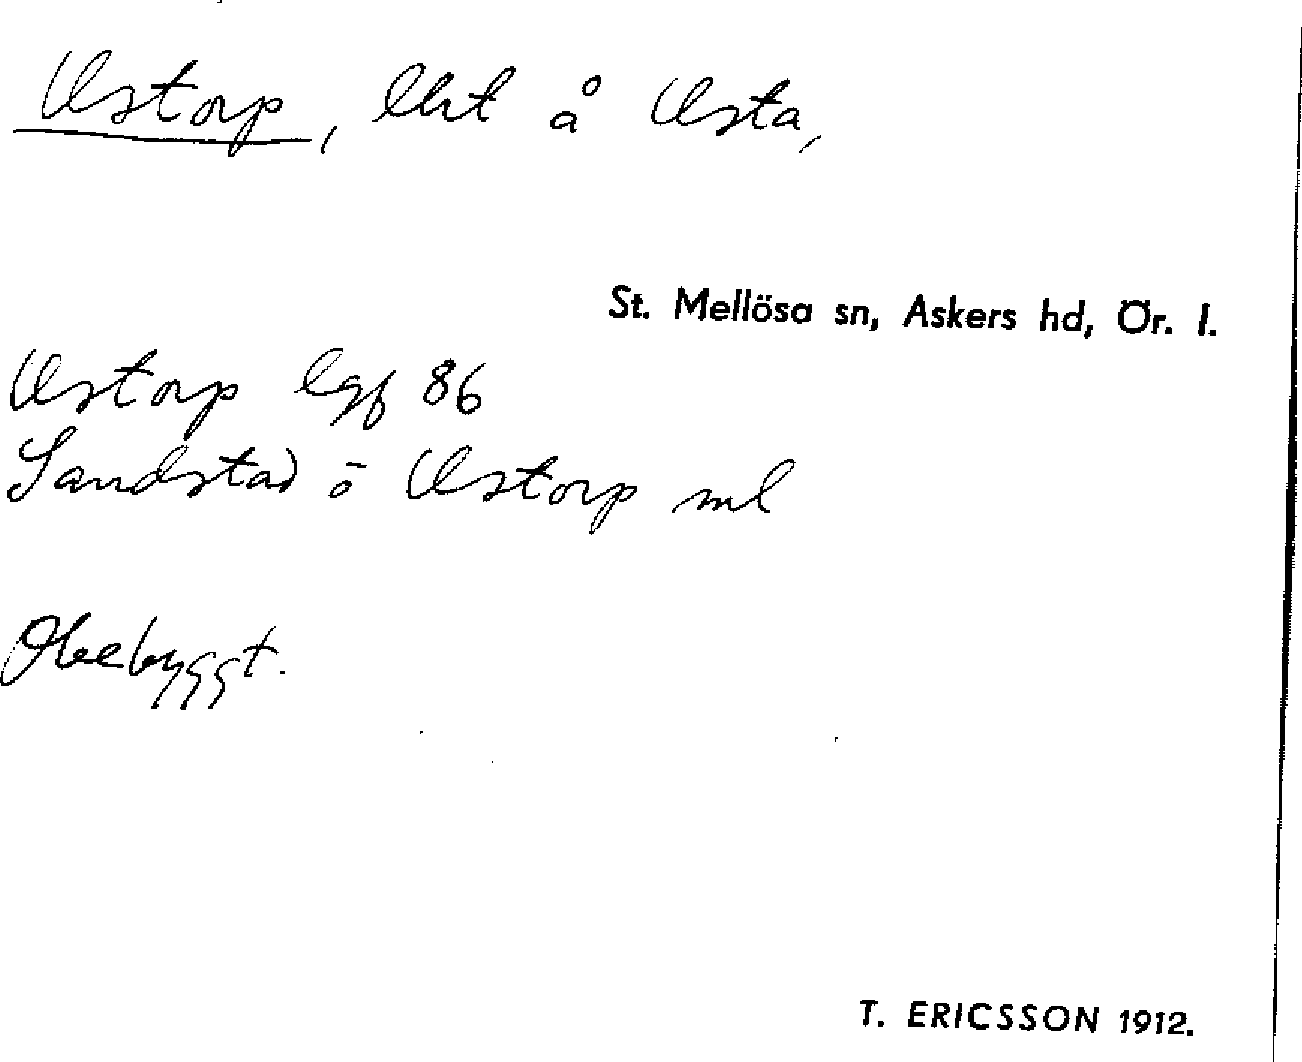 Ustorp, lht å Usta,
St. Mellösa sn, Askers hd, Ör. l.
Ustorp lgf 86
Sandstad ö Ustorp ml
Obebyggt.
T. ERICSSON 1912.